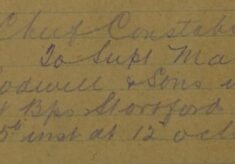 Chief Constab
To Supt Ma
odwell & Sons
Bps Stortford
5th inst at 12 ocl